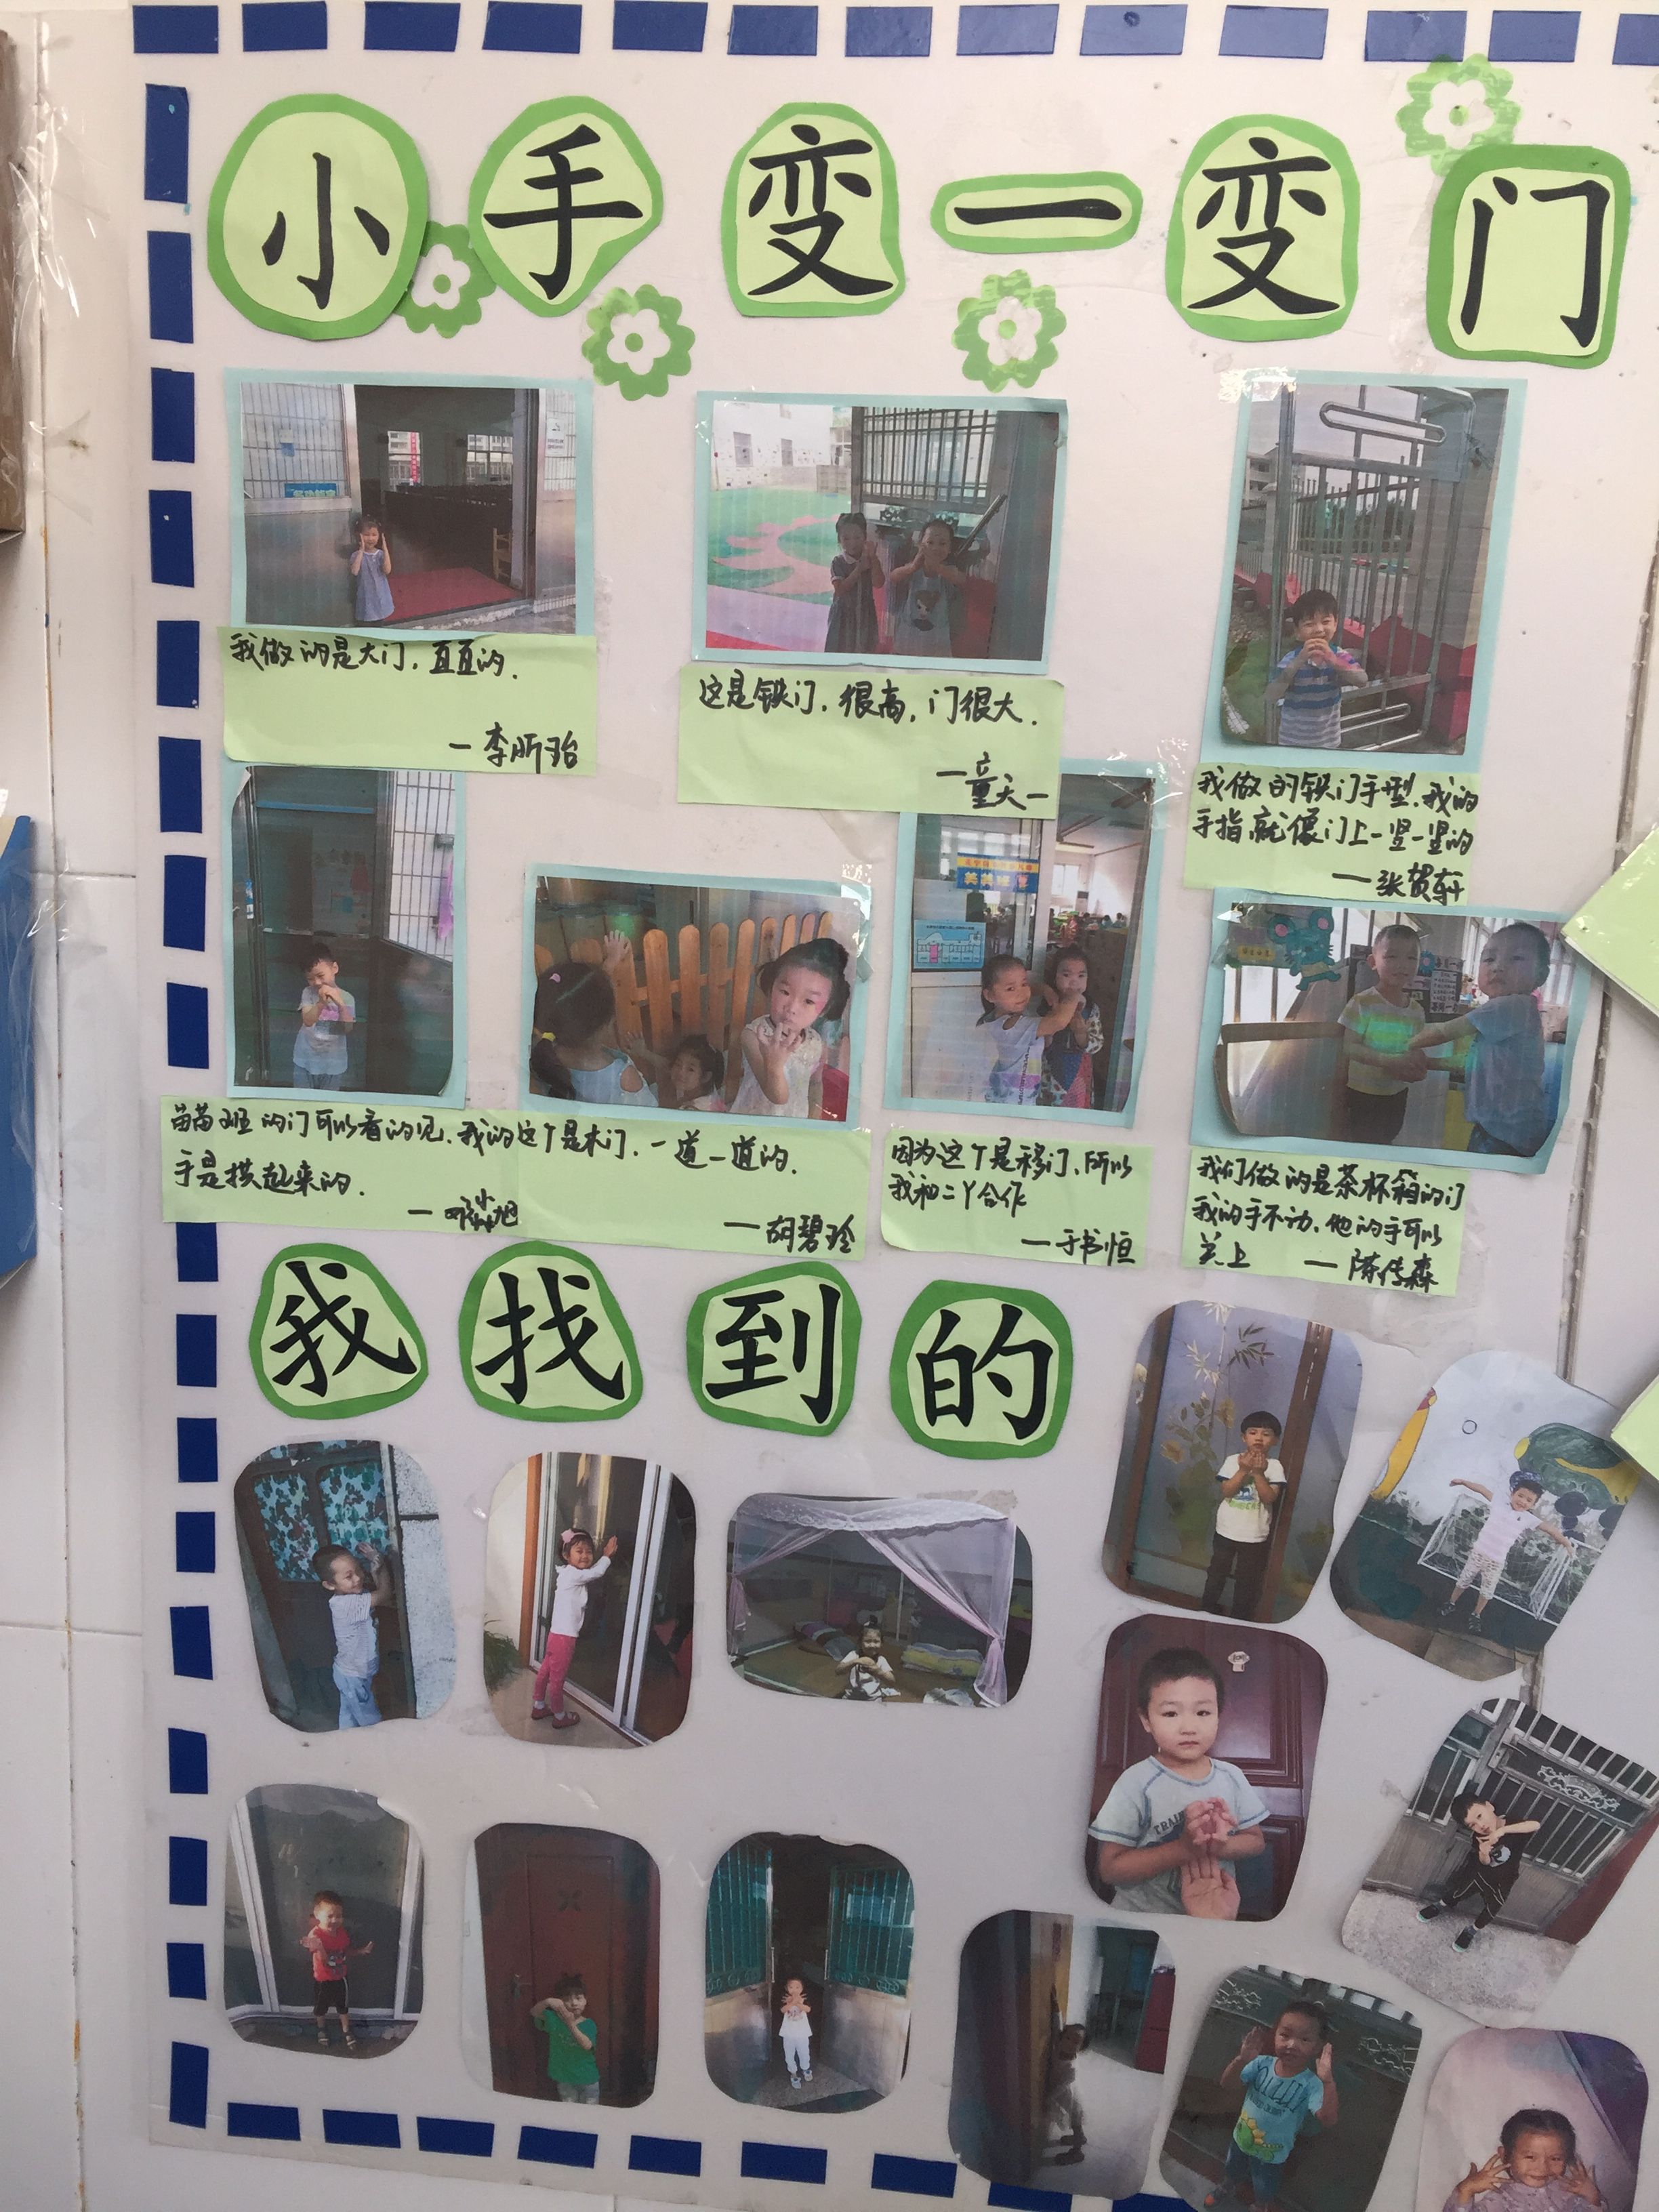 小手变一变门
我做的是大门，直直的．
一李昕珆
这是铁门，很高，门很大．
一童天一
我做的铁门手型，我的
手指就像门上一竖一竖的
一张贺轩
苗苗班的门可以看的见，
手是拱起来的．
我的这个是木门，一道一道的．
一胡碧玲
因为这个是移门，所以
我和二丫合作
一于书恒
我们做的是茶杯箱的门
我的手不动，他的手可以
关上 一陈传森
我找到的